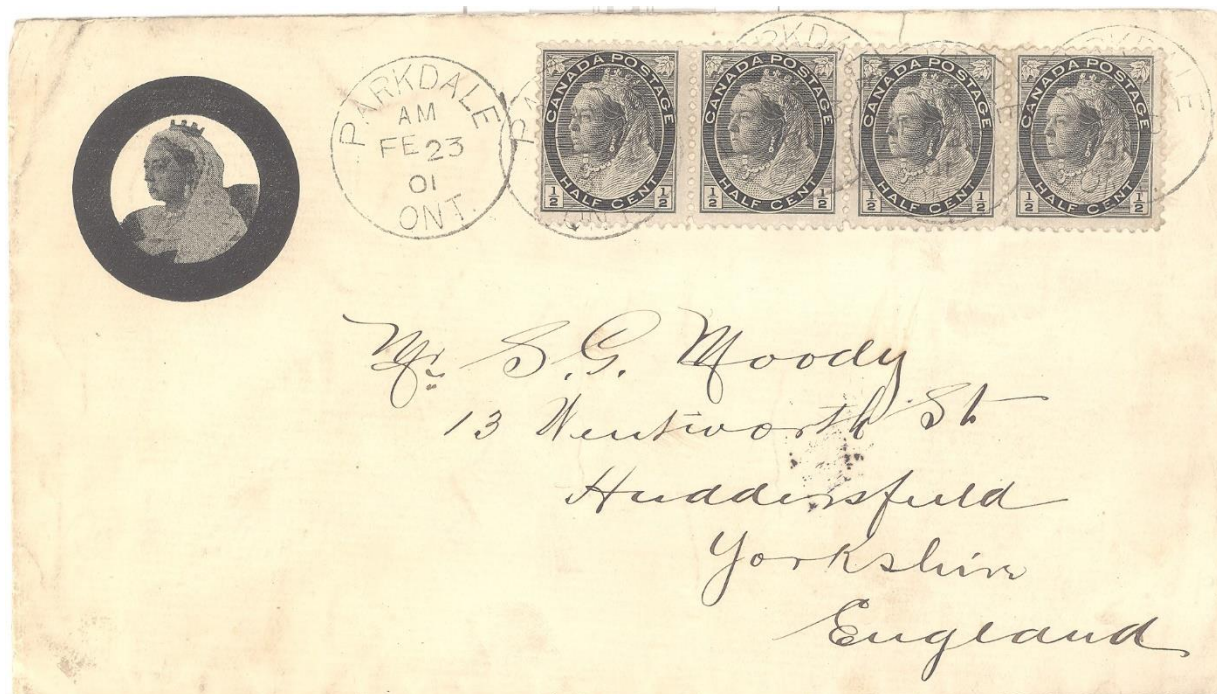 PARKDALE
AM
FE 23
01
ONT.
CANADA POSTAGE
1/2 HALF CENT 1/2
CANADA POSTAGE
1/2 HALF CENT 1/2
CANADA POSTAGE
1/2 HALF CENT 1/2
CANADA POSTAGE
1/2 HALF CENT 1/2
Mr. S. G. Moody
13 Wentworth St
Huddersfield
Yorkshire
England